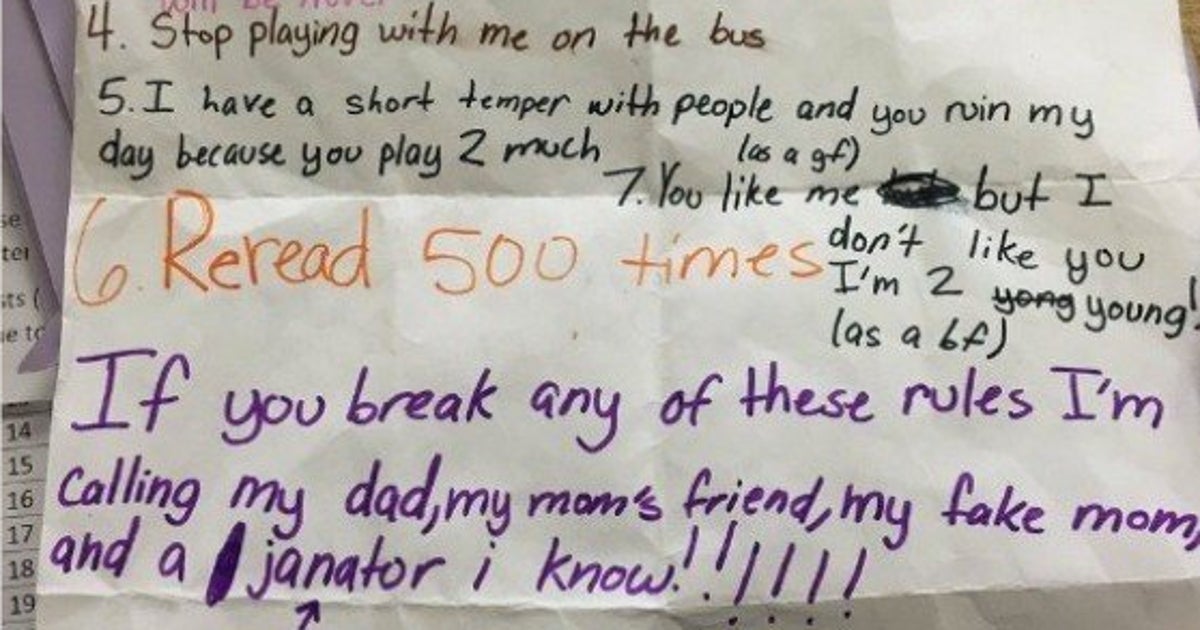 4. Stop playing with me on the bus
5. I have a short temper with people and you ruin my
day because you play 2 much
6. Reread 500 times
(as a gf)
7. You like me but I
don't like you
I'm 2 yong young!
(as a bf)
If you break any of these rules I'm
calling my dad, my mom's friend, my fake mom,
and a janator i know!!!!!!
14
15
16
17
18
19